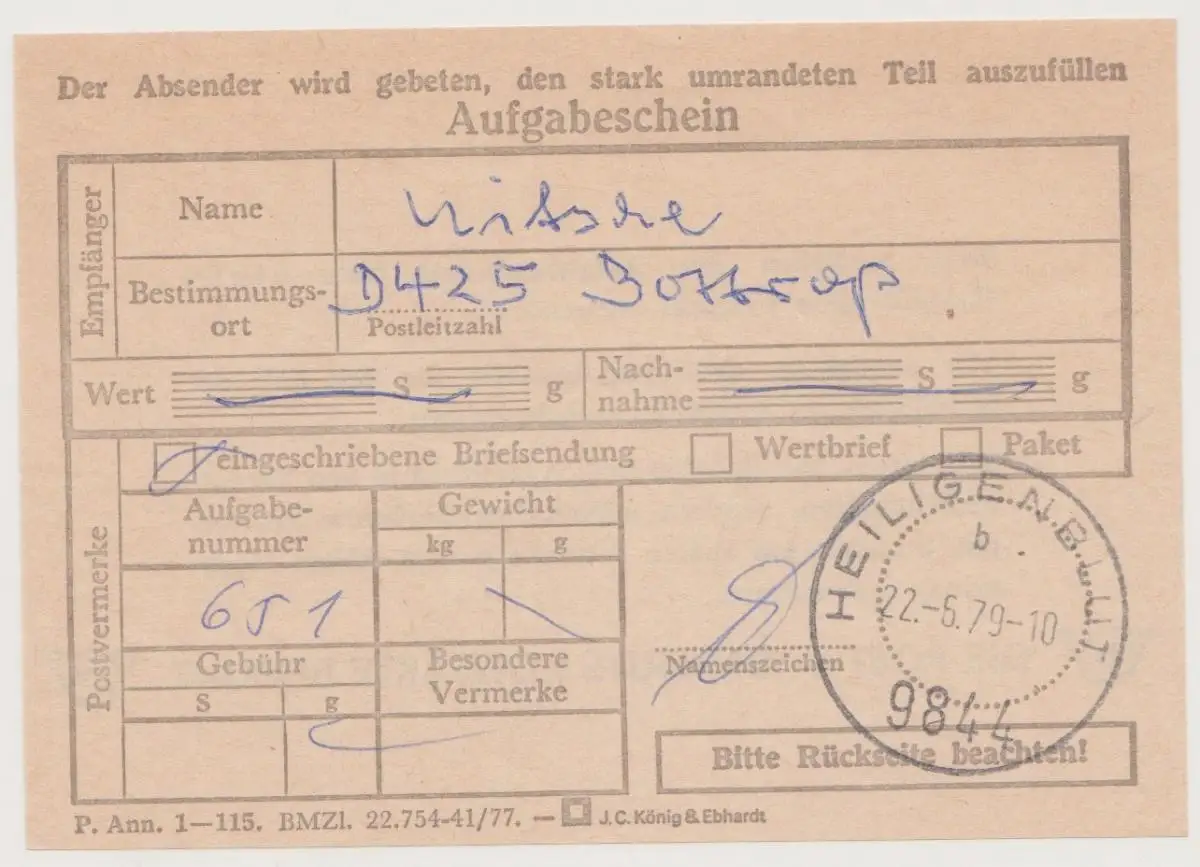 Der Absender wird gebeten, den stark umrandeten Teil auszufüllen
Aufgabeschein
Empfänger
Name
Nitsche
Bestimmungs-
ort
D425 Bottrop
Postleitzahl
Wert S g
Nach-
nahme S g
Postvermerke
eingeschriebene Briefsendung Wertbrief Paket
Aufgabe-
nummer
Gewicht
kg g
651
Gebühr
S g
Besondere
Vermerke
Namenszeichen
HEILIGENBLUT
b
22.-6.79-10
9844
Bitte Rückseite beachten!
P. Ann. 1—115. BMZl. 22.754-41/77. — J.C. König & Ebhardt